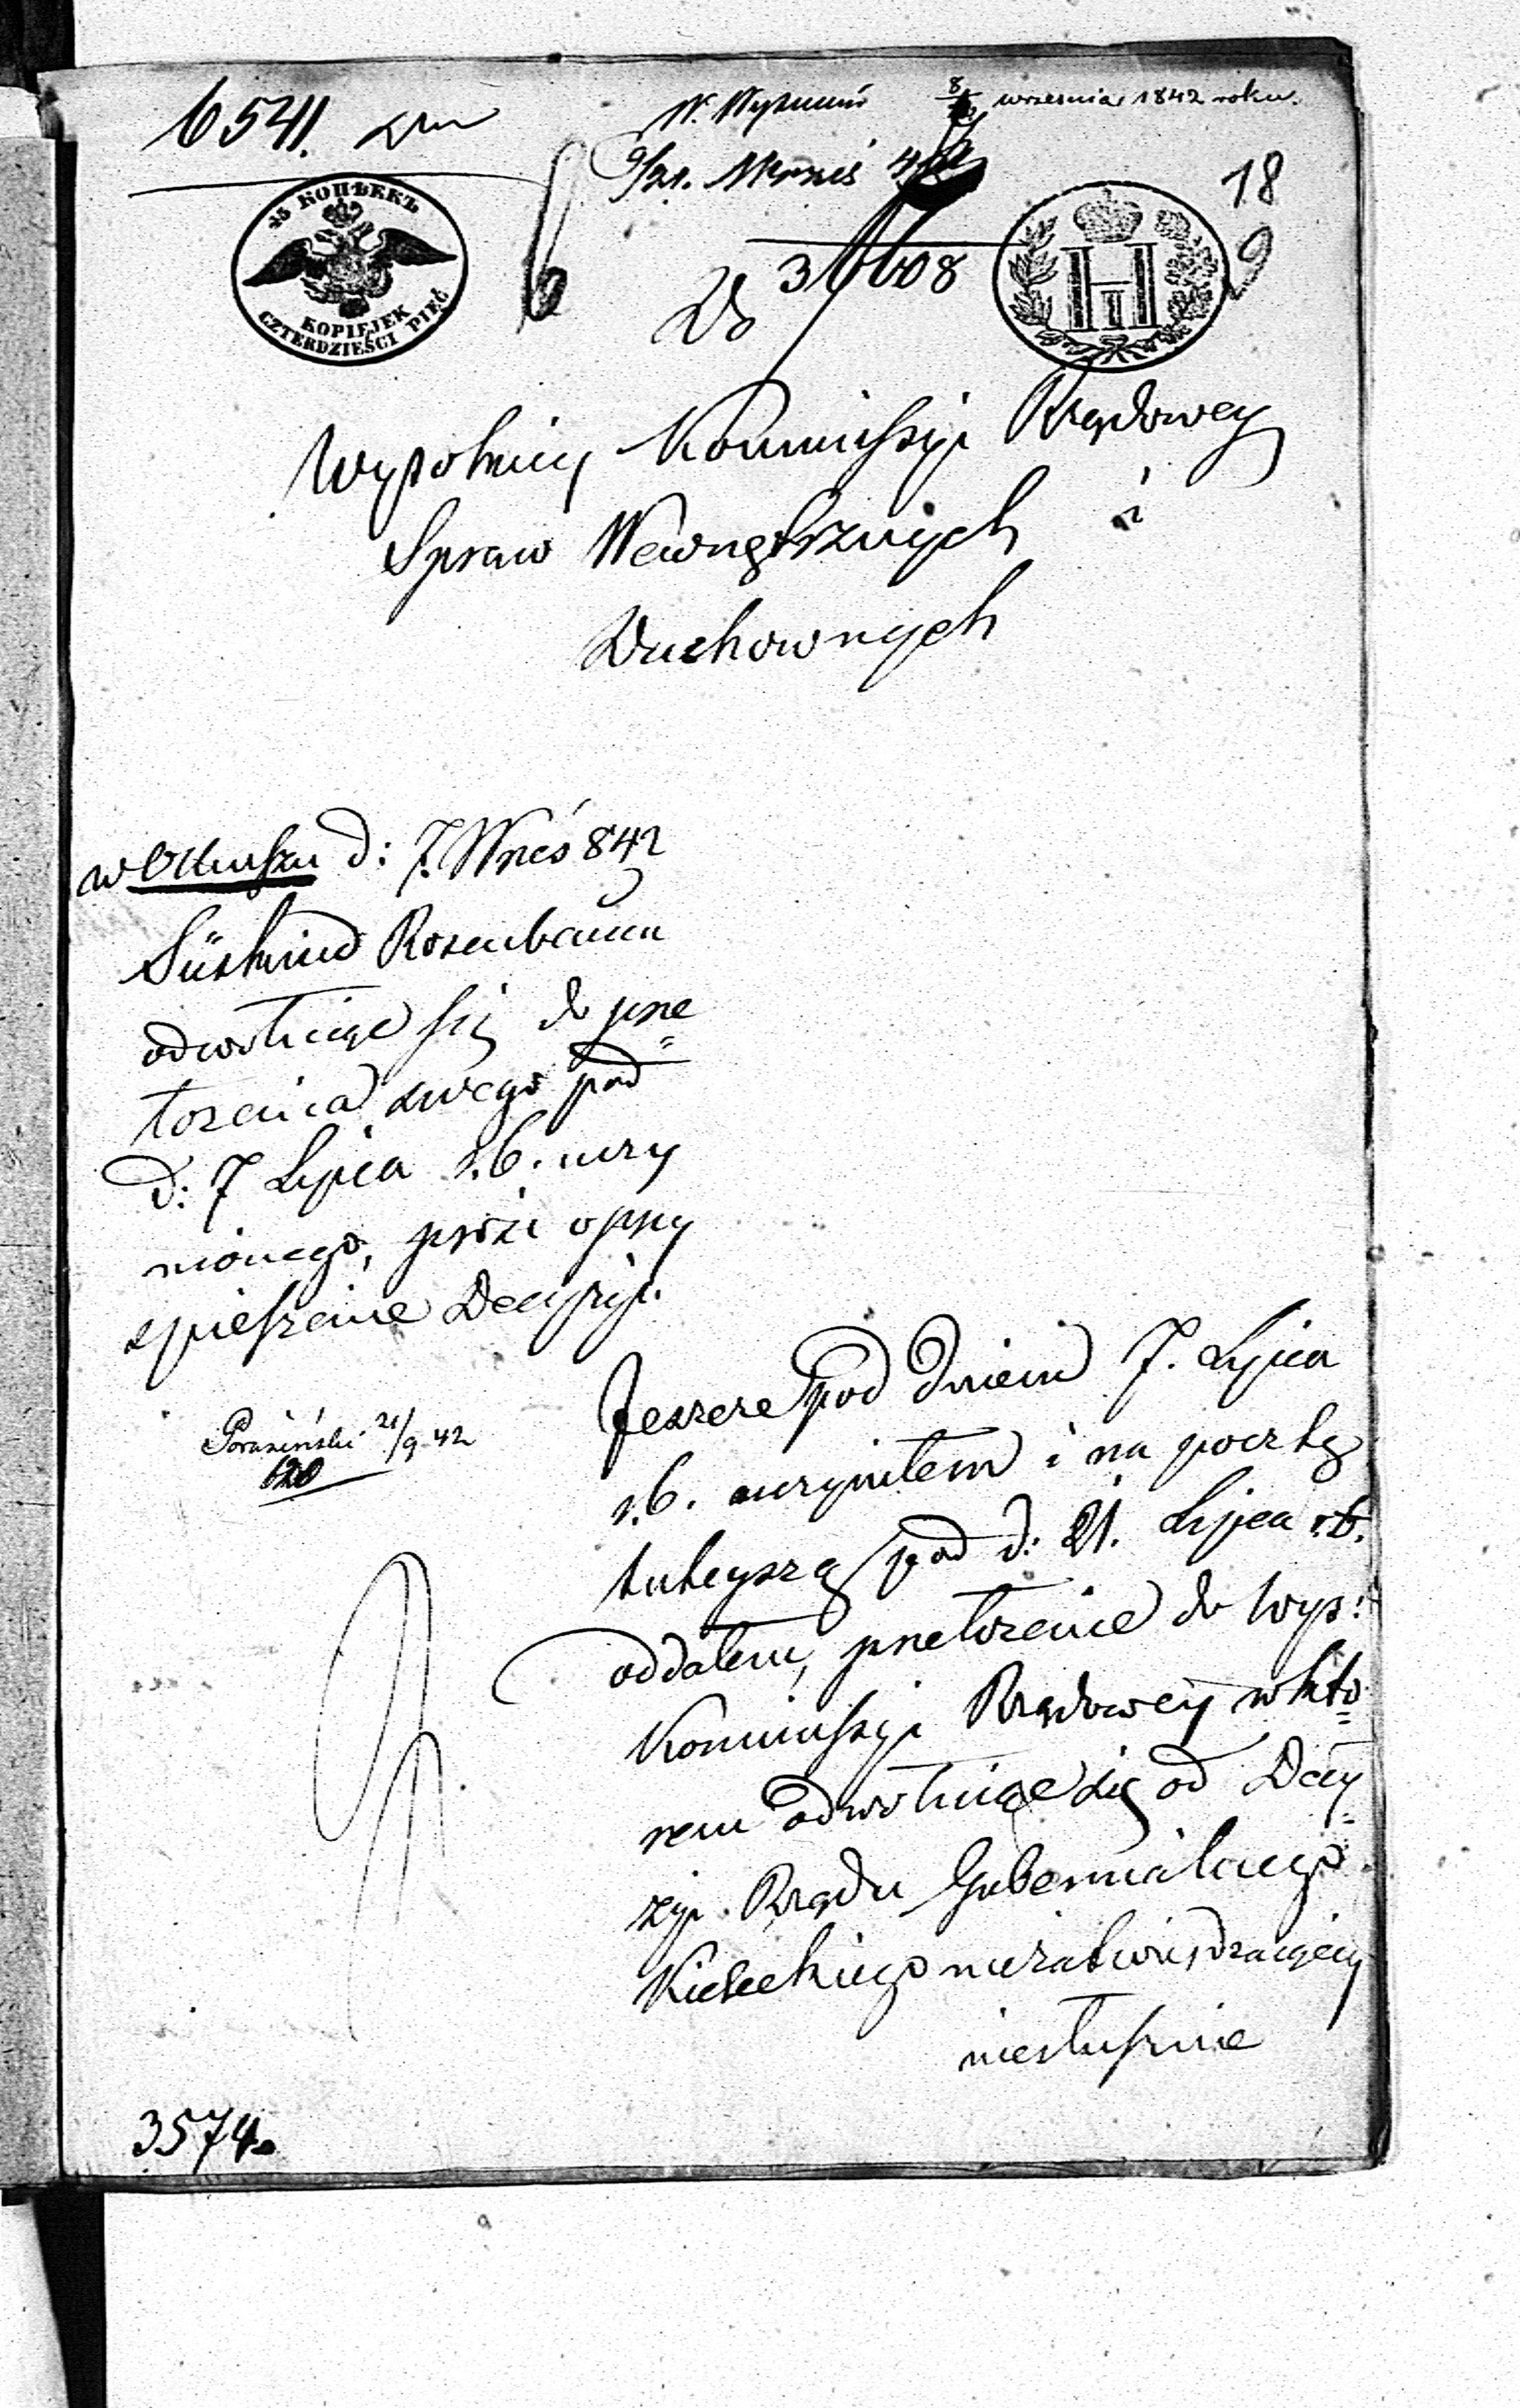 6541.
W. Wydział 8/20 września 1842 roku.
9/21. Wrześ 42
18
9
45 КОПѢЕКЪ
KOPIEJEK
CZTERDZIEŚCI PIĘĆ
6
36608
Do
HI
Wysokiey Kommissyi Rządowey
Spraw Wewnętrznych i
Duchownych
w Olkuszu d: 7. Wrześ 842
Süskind Rosenbaum
odwołuiąc się do prze=
łożenia swego pod
d: 7 Lipca r.b. uczy
nionego, prosi o przy
spieszenie Decyzyi.
21/9 42
120
Jeszcze pod dniem 7. Lipca
r.b. uczyniłem i na pocztę
tuteyszą pod d: 21. Lipca r.b.
oddałem, przełożenie do Wys:
Kommissyi Rządowey w któ=
rem odwołuiąc się od Decy=
zyi Rządu Gubernialnego
Kieleckiego niezatwierdzaiącey
niesłusznie
3574.